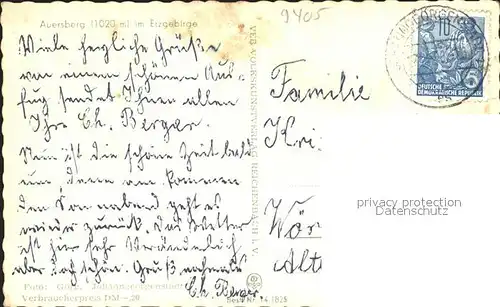 Auersberg (1020 m) im Erzgebirge
9405
Viele herzliche Grüße
von einem schönen Aus-
flug sendet Ihnen allen
Ihre Ch. Berger.
Nun ist die schöne Zeit bald
um, denn am kommen
den Sonnabend geht es
wieder zurück. Das Wetter
ist hier sehr veränderlich
aber doch schön. Gruß nochmals
Ch. Berger
Verbraucherpreis DM -,20
Best. Nr. 14 1825
VEB VOLKSKUNSTVERLAG REICHENBACH I. V.
10
5
DEUTSCHE
DEMOKRATISCHE REPUBLIK
Familie
Kri
Wör
Alt
privacy protection
Datenschutz